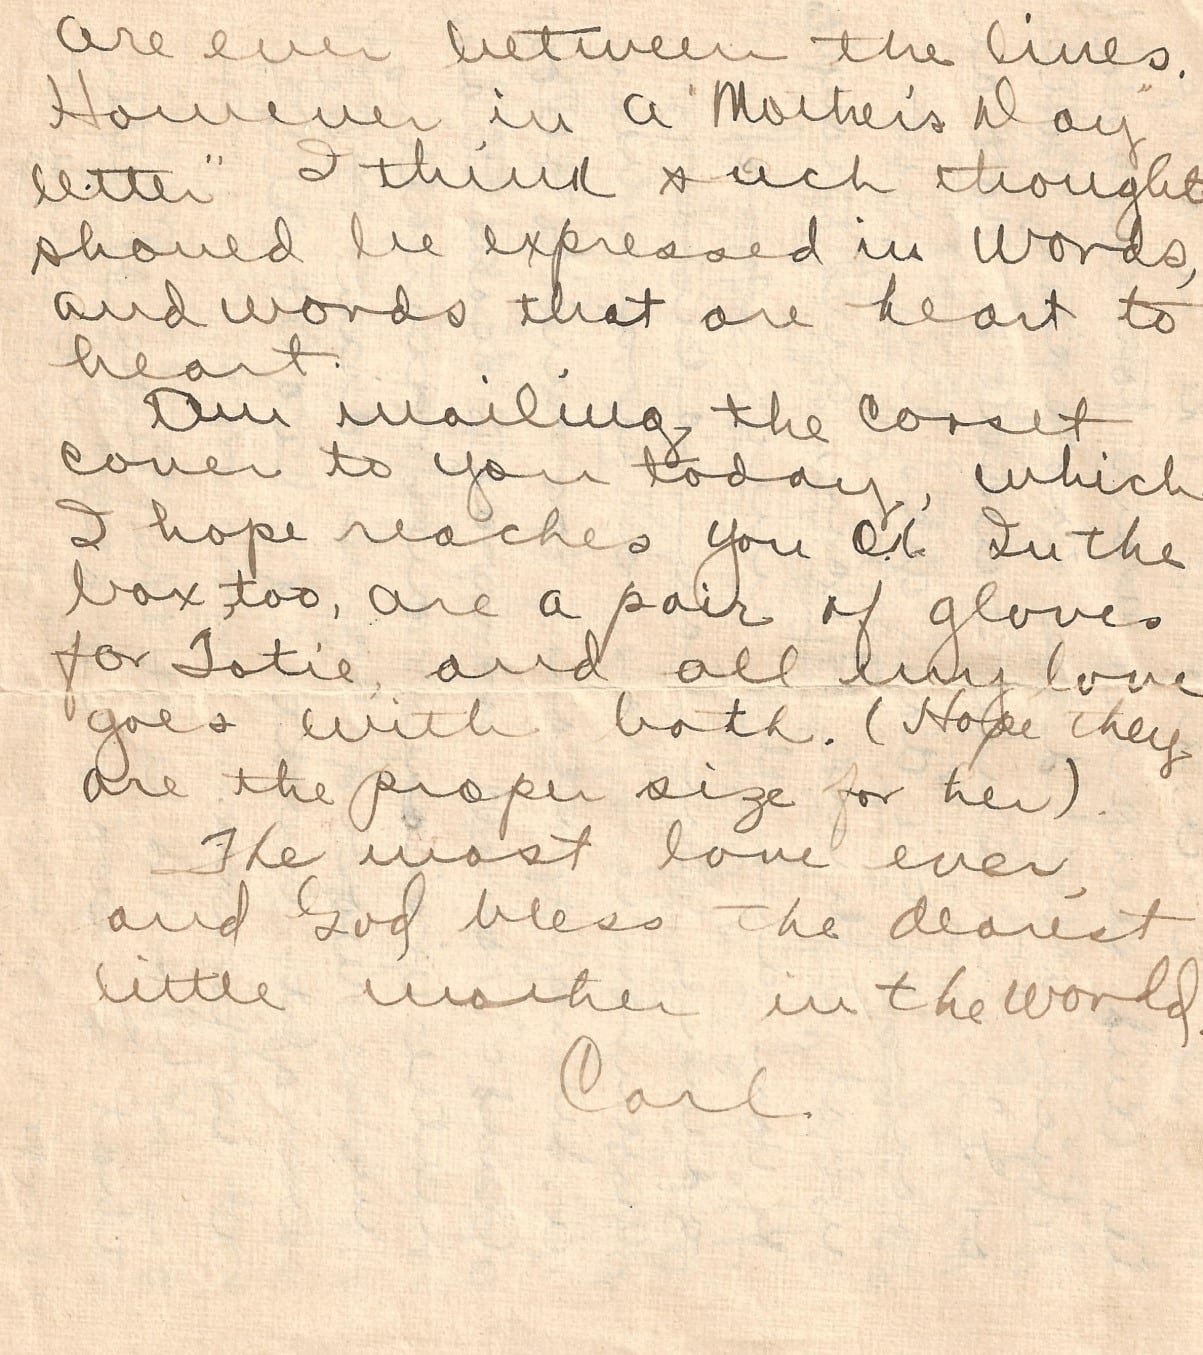 are ever between the lines.
However in a "Mother's Day"
letter" I think such thought
should be expressed in words,
and words that are heart to
heart.
Am mailing the corset
cover to you today, which
I hope reaches you O.K. In the
box, too, are a pair of gloves
for Totie, and all my love
goes with both. (Hope they
are the proper size for her).
The most love ever,
and God bless the dearest
little mother in the world.
Carl.